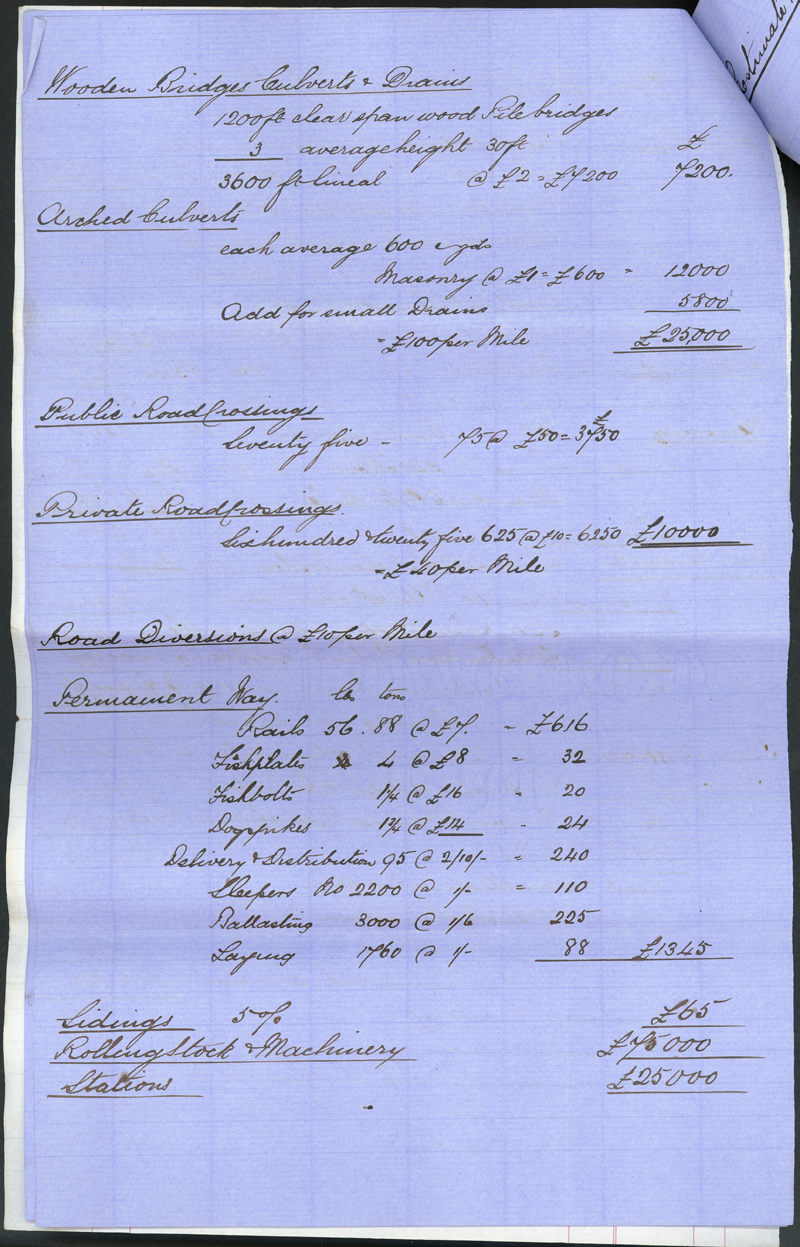 Estimate
Wooden Bridges Culverts & Drains
1200ft clear span wood Pile bridges
3 average height 30ft £
3600 ft lineal @ £2 = £7200 7200.
Arched Culverts
each average 600 c yds
Masonry @ £1 = £600 = 12000
Add for small Drains 5800
= £100 per Mile £25,000
Public Road Crossings
Seventy five - 75 @ £50 = £3750
Private Road Crossings.
Six hundred & twenty five 625 @ £10 = 6250 £10000
= £40 per Mile
Road Diversions @ £10 per Mile
Permament Way. lbs tons
Rails 56. 88 @ £7. = £616
Fishplates 4 @ £8 = 32
Fishbolts 1¼ @ £16 = 20
Dogspikes 1¾ @ £14 - 24
Delivery & Distribution 95 @ 2/10/- = 240
Sleepers No 2200 @ 1/- = 110
Ballasting 3000 @ 1/6 225
Laying 1760 @ 1/- 88 £1345
Sidings 5 % £65
Rolling Stock & Machinery £75000
Stations £25000